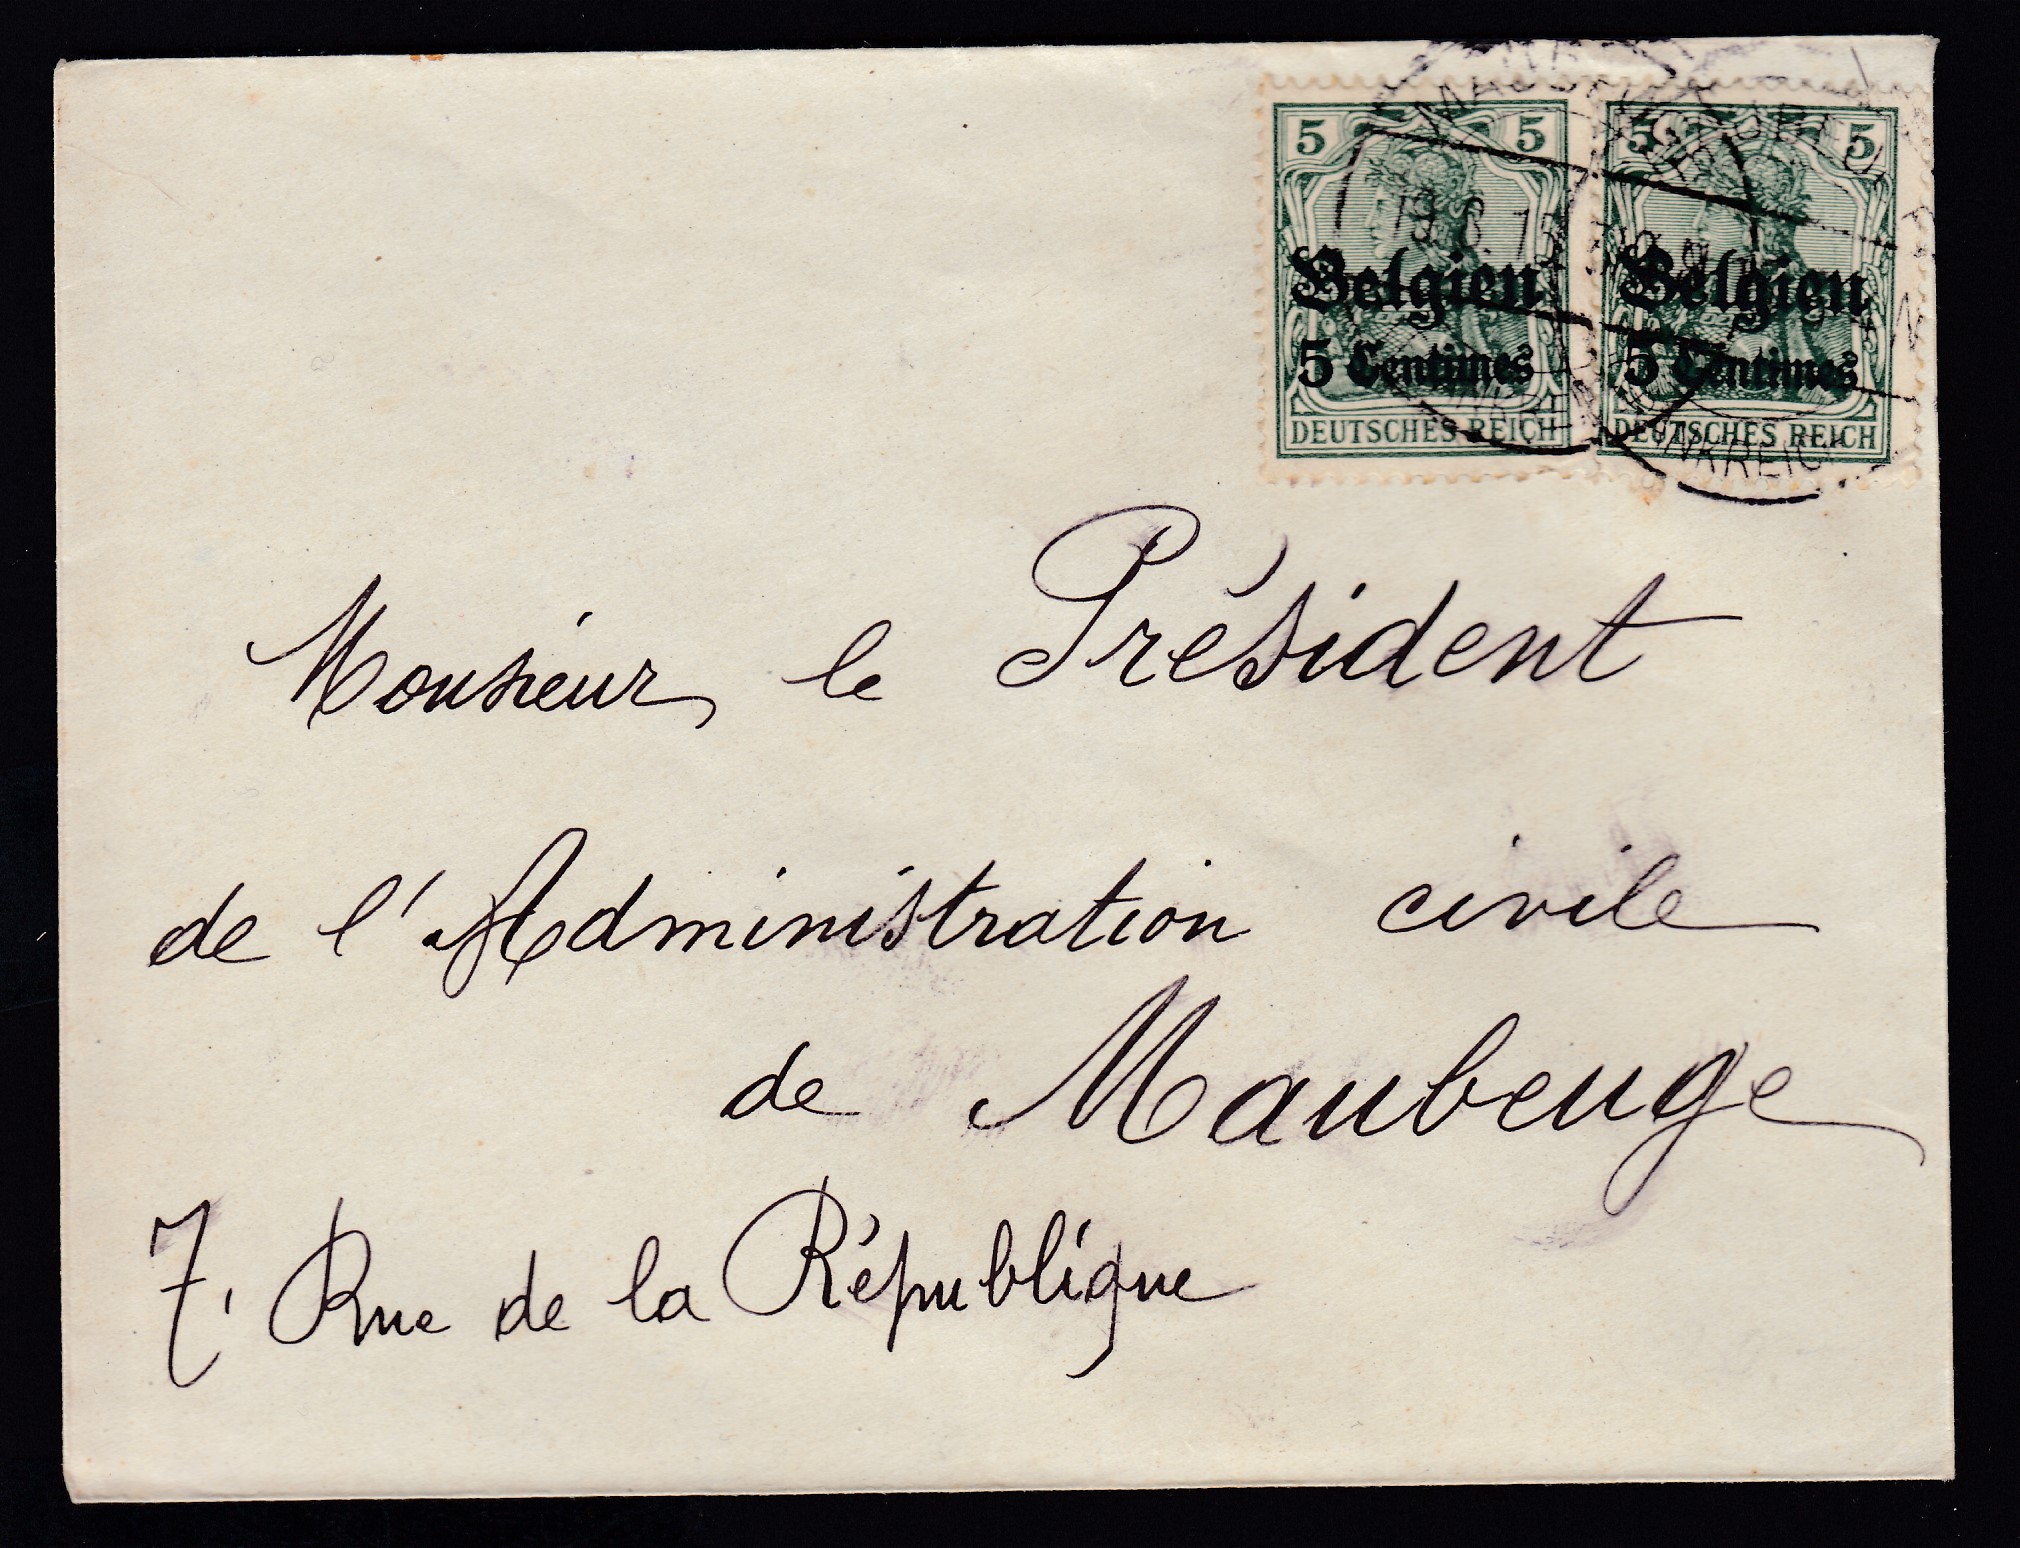 5 5 5 5
19.6.15
Belgien Belgien
5 Centimes 5 Centimes
DEUTSCHES REICH DEUTSCHES REICH
Monsieur le Président
de l'Administration civile
de Maubeuge
7, Rue de la République